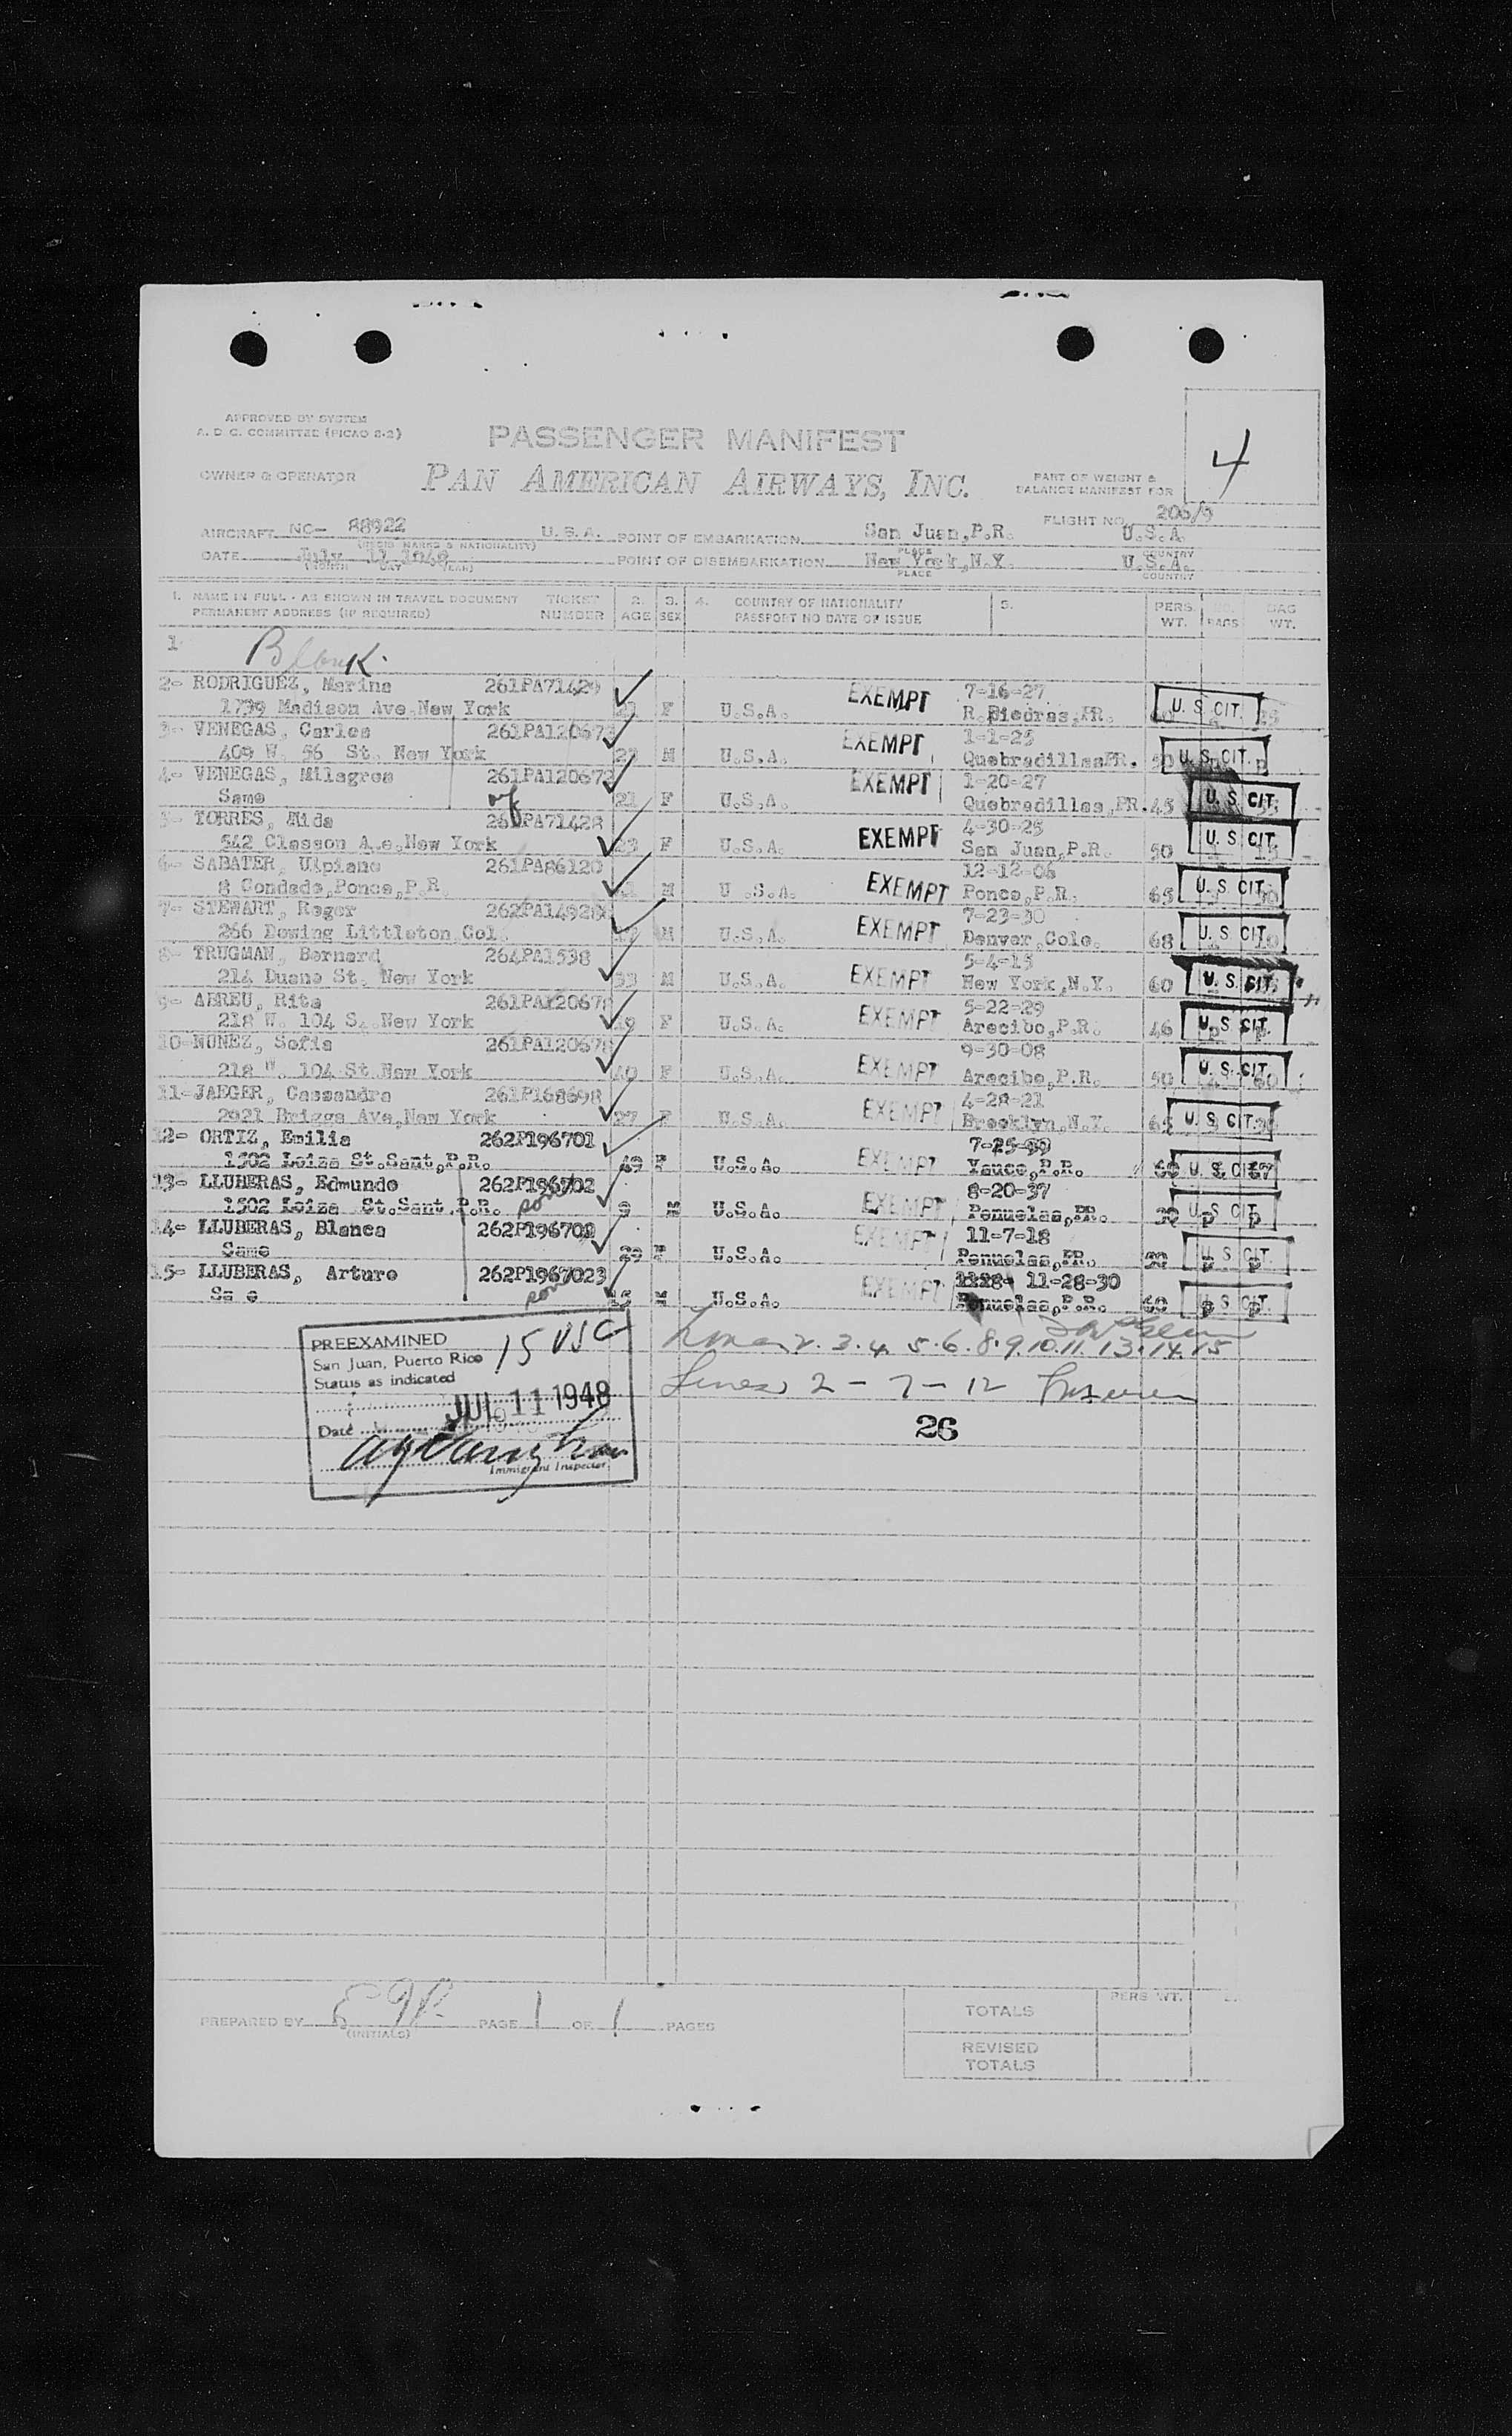 4
APPROVED BY SYSTEM
A. D. C. COMMITTEE (PICAO 2-2)
PASSENGER MANIFEST
OWNER & OPERATOR PAN AMERICAN AIRWAYS, INC. PART OF WEIGHT &
BALANCE MANIFEST FOR
FLIGHT NO. 206/9
AIRCRAFT NC- 88922 U.S.A. POINT OF EMBARKATION San Juan,P.R. U.S.A.
(REGIS MARKS & NATIONALITY) PLACE COUNTRY
DATE July 11 1948 POINT OF DISEMBARKATION New York,N.Y. U.S.A.
(MONTH DAY YEAR) PLACE COUNTRY
1. NAME IN FULL - AS SHOWN IN TRAVEL DOCUMENT TICKET 2. 3. 4. COUNTRY OF NATIONALITY 5. PERS. NO. BAG
PERMANENT ADDRESS (IF REQUIRED) NUMBER AGE SEX PASSPORT NO DATE OF ISSUE WT. BAGS WT.
1 Blank.
2- RODRIGUEZ, Marina 261PA71429 EXEMPT 7-16-27
1799 Madison Ave.New York F U.S.A. R.Piedras,PR. U. S. CIT.
3- VENEGAS, Carlos EXEMPT 1-1-25
409 W. 56 St. New York M U.S.A. Quebradillas PR. 50 U. S. CIT.
4- VENEGAS, Milagros 261PA120672 EXEMPT 1-20-27
Same 21 F U.S.A. Quebradillas,PR. 45 U. S. CIT.
5- TORRES, Aida 261PA71428 EXEMPT 4-30-25
542 Classon A.e.New York 23 F U.S.A. San Juan,P.R. 50 U. S. CIT.
6- SABATER, Ulpiano 261PA86120 EXEMPT 12-12-06
8 Condado,Ponce,P.R. M U.S.A. Ponce,P.R. 65 U. S. CIT.
7- STEWART, Roger EXEMPT 7-23-30
266 Dowing Littleton Col. M U.S.A. Denver,Colo. 68 U. S. CIT.
8- TRUGMAN, Bernard 264PA1598 EXEMPT 5-4-15
214 Duane St. New York 33 M U.S.A. New York,N.Y. 60 U. S. CIT.
9- ABREU, Rita EXEMPT 5-22-29
218 W. 104 S..New York F U.S.A. Arecibo,P.R. 46 U. S. CIT.
10-NUNEZ, Sofia EXEMPT 9-30-08
218 W. 104 St.New York 40 F U.S.A. Arecibo,P.R. 50 U. S. CIT.
11-JAEGER, Cassandra 261P168698 EXEMPT 4-28-21
2921 Briggs Ave,New York 27 F U.S.A. Brooklyn,N.Y. 65 U. S. CIT.
12- ORTIZ, Emilia 262P196701 EXEMPT 7-25-99
1502 Loiza St.Sant,P.R. 49 F U.S.A. Yauco,P.R. 60 U. S. CIT.
13- LLUBERAS, Edmundo 262P196702 EXEMPT 8-20-37
1502 Loiza St.Sant.P.R. 9 M U.S.A. Penuelas,PR. U. S. CIT.
14- LLUBERAS, Blanca EXEMPT 11-7-18
Same 29 F U.S.A. Penuelas,PR. U. S. CIT.
15- LLUBERAS, Arturo EXEMPT 11-28-30
Sa e 15 M U.S.A. Penuelas,P.R. 60 U. S. CIT.
PREEXAMINED 15 USC
San Juan, Puerto Rico
Status as indicated
JUL 11 1948
Date
Immigrant Inspector.
Lines 2. 3. 4. 5. 6. 8. 9. 10. 11. 13. 14. 15
Lines 2 - 7 - 12
26
PREPARED BY PAGE 1 OF 1 PAGES
(INITIALS)
TOTALS PERS WT.
REVISED
TOTALS